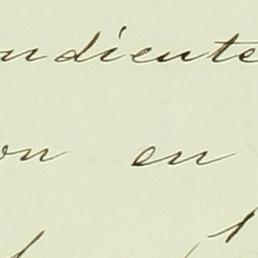 ndiente
on en